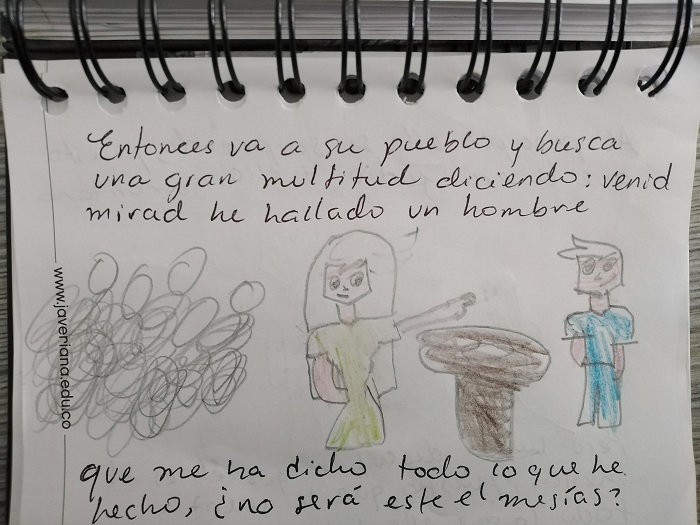 Entonces va a su pueblo y busca
una gran multitud diciendo: venid
mirad he hallado un hombre
www.javeriana.edu.co
que me ha dicho todo lo que he
hecho, ¿no será este el mesías?